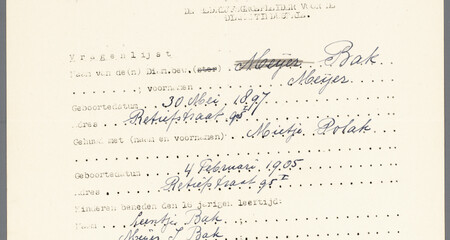 Vragenlijst
Naam van de(n) Diam.bew.(ster) Meijer Bak
; voornamen Meijer
Geboortedatum 30 Mei 1897
Adres Retiefstraat 95 I
Gehuwd met (naam en voornamen) Mietje Polak
Geboortedatum 4 Februari 1905
Adres Retiefstraat 95 I
Kinderen beneden den 16 jarigen leeftijd:
Naam Leentje Bak
Meijer J Bak